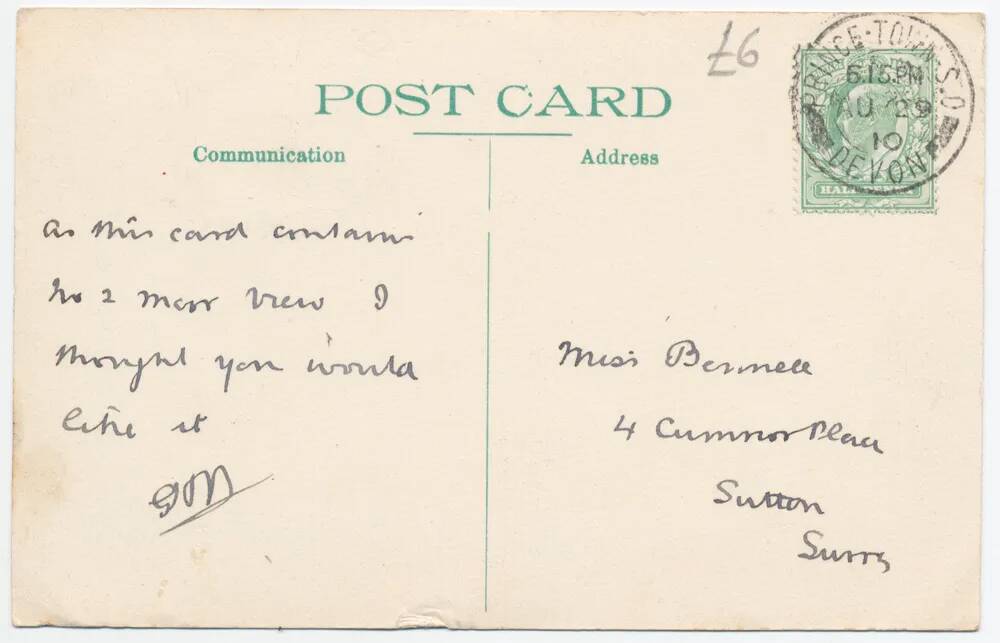 £6
POST CARD
Communication
Address
PRINCE-TOWN. S.O
6.15 PM
AU 29
10
DEVON
HALFPENNY
as this card contains
No 2 Moor View I
thought you would
like it
Miss Bennell
4 Cumnor Place
Sutton
Surry